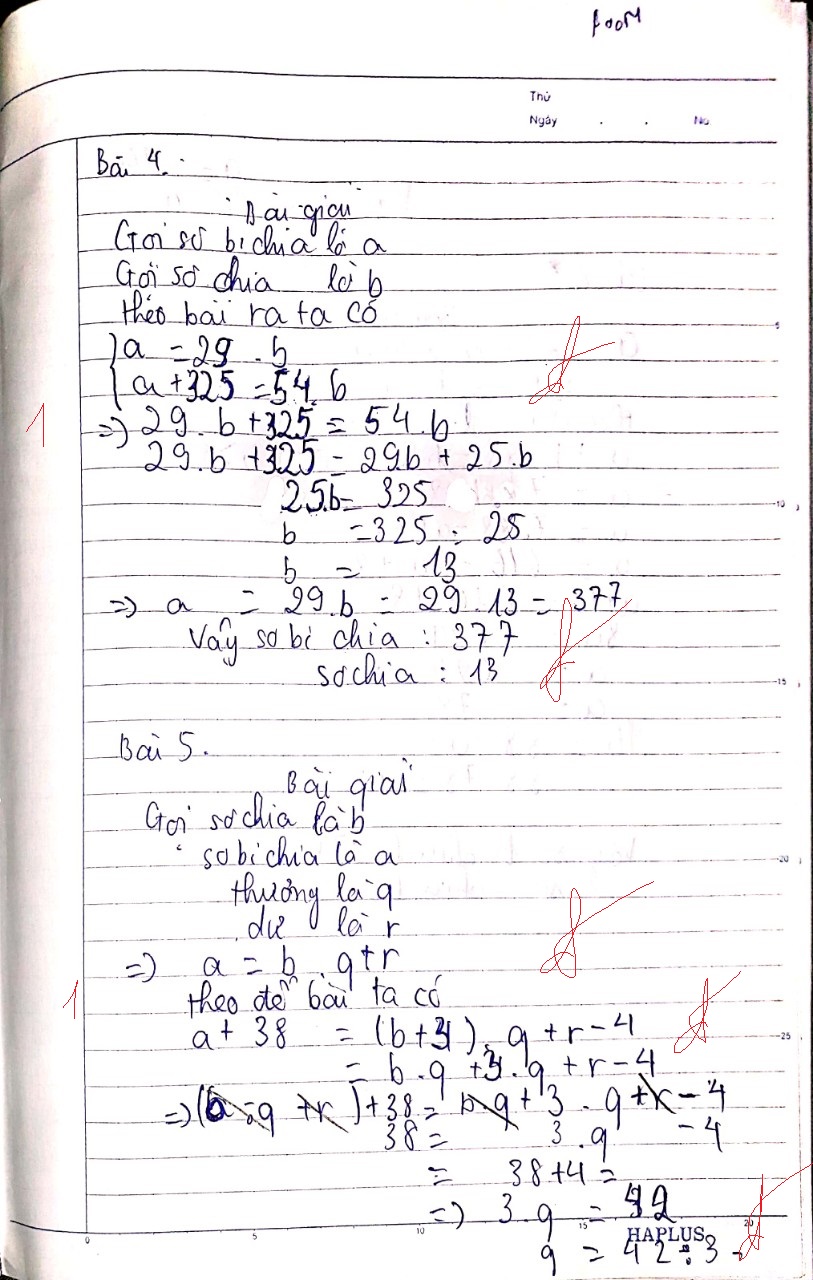 Thứ
Ngày . . No
Bài 4.
Bài giải
Gọi số bị chia là a
Gọi số chia là b
theo bài ra ta có
a = 29 . b
a + 325 = 54. b
1
=> 29. b + 325 = 54.b
29.b + 325 = 29b + 25.b
25.b = 325
b = 325 : 25
b = 13
=> a = 29.b = 29 . 13 = 377
Vậy số bị chia : 377
số chia : 13
Bài 5.
Bài giải
Gọi số chia là b
số bị chia là a
thương là q
dư là r
=> a = b . q + r
1
theo đề bài ta có
a + 38 = (b+3) . q + r - 4
= b . q + 3. q + r - 4
=> (b . q + r) + 38 = b.q + 3 . q + r - 4
38 = 3 . q - 4
= 38 + 4 =
=> 3 . q = 42
HAPLUS
q = 42 : 3 =
0 5 10 15 20
5
10
15
20
25